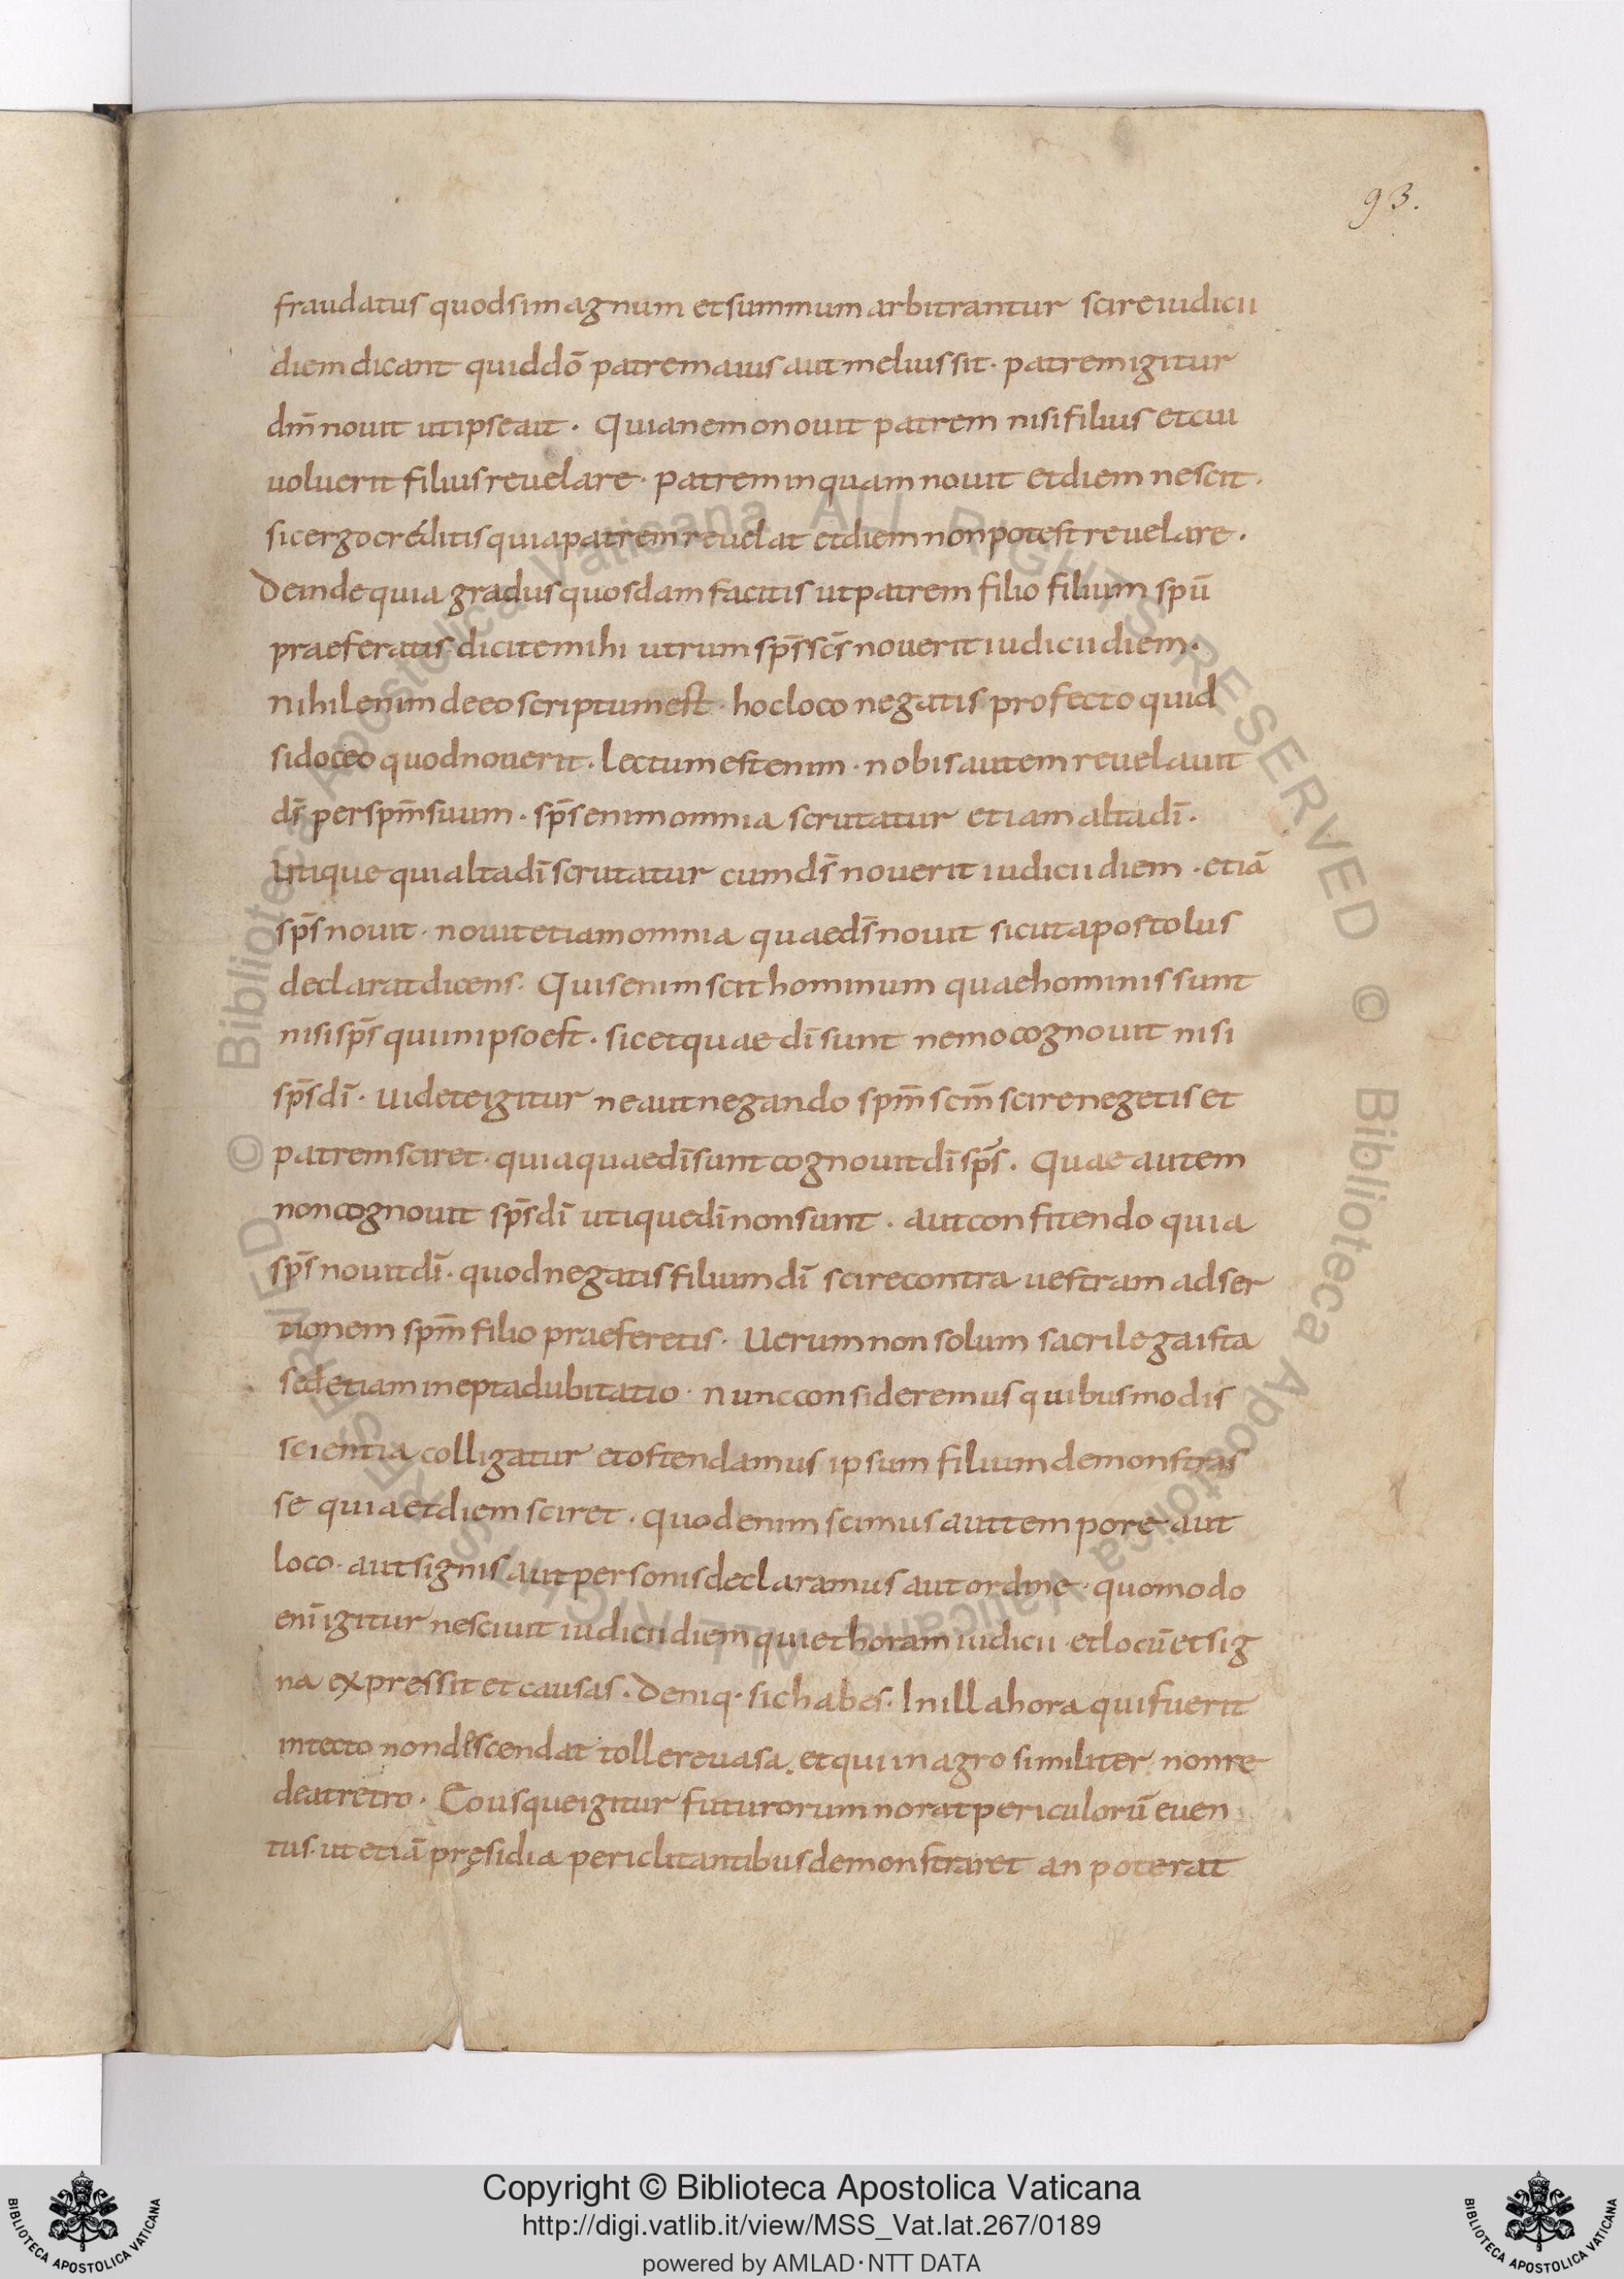 93.
fraudatus quodsimagnum etsummum arbitrantur scireiudicii
diem dicant quiddō patremaius aut meliussit· patremigitur
dm̄ nouit utipseait· Quianemonouit patrem nisifilius etcui
uoluerit filiusreuelare· patreminquamnouit etdiem nescit·
sicergocreditisquiapatremreuelat etdiemnonpotestreuelare·
Deindequia gradusquosdamfacitis utpatrem filio filium spū
praeferatis dicitemihi utrum sp̄s sc̄s nouerit iudicii diem·
nihilenim deeoscriptumest· hocloco negatis profecto quid
sidoceo quodnouerit· Lectumestenim· nobisautemreuelauit
ds̄ perspm̄suum· sp̄senimomnia scrutatur etiam altadī·
Utique quialtadī scrutatur cumds̄ nouerit iudicii diem· etiā
sp̄s nouit· nouitetiamomnia quaeds̄ nouit sicutapostolus
declaratdicens· Quisenimscithominum quaehominissunt
nisisp̄s quiinipsoest· sicetquae dīsunt nemocognouit nisi
sp̄sdī· uideteigitur neautnegando spm̄ scm̄ scirenegetiset
patremsciret· quiaquaedīsuntcognouitdīsp̄s· Quae autem
noncognouit sp̄sdī utiquedīnonsunt· autconfitendo quia
sp̄s nouitdī· quodnegatisfiliumdī scirecontra uestram adser
tionem spm̄ filio praeferetis· Uerumnonsolum sacrilegaista
sedetiamineptadubitatio· nuncconsideremusquibusmodis
scientia colligatur etostendamus ipsum filiumdemonstras
se quiaetdiemsciret· quodenimscimus auttempore aut
loco· autsignis autpersonisdeclaramusautordine· quomodo
enī igitur nesciuit iudicii diemquiethoramiudicii· etlocūetsig
na expressit et causas· Deniq· sichabes· Inillahora quifuerit
intecto nondescendat tollereuasa· etqui inagro similiter nonre
deatretro· Eousqueigitur futurorumnoratpericulorū euen
tus· utetiā pręsidia periclitantibusdemonstraret an poterat
© Biblioteca Apostolica Vaticana ALL RIGHTS RESERVED
© Biblioteca Apostolica Vaticana ALL RIGHTS RESERVED
BIBLIOTECA APOSTOLICA VATICANA
Copyright © Biblioteca Apostolica Vaticana
http://digi.vatlib.it/view/MSS_Vat.lat.267/0189
powered by AMLAD·NTT DATA
BIBLIOTECA APOSTOLICA VATICANA